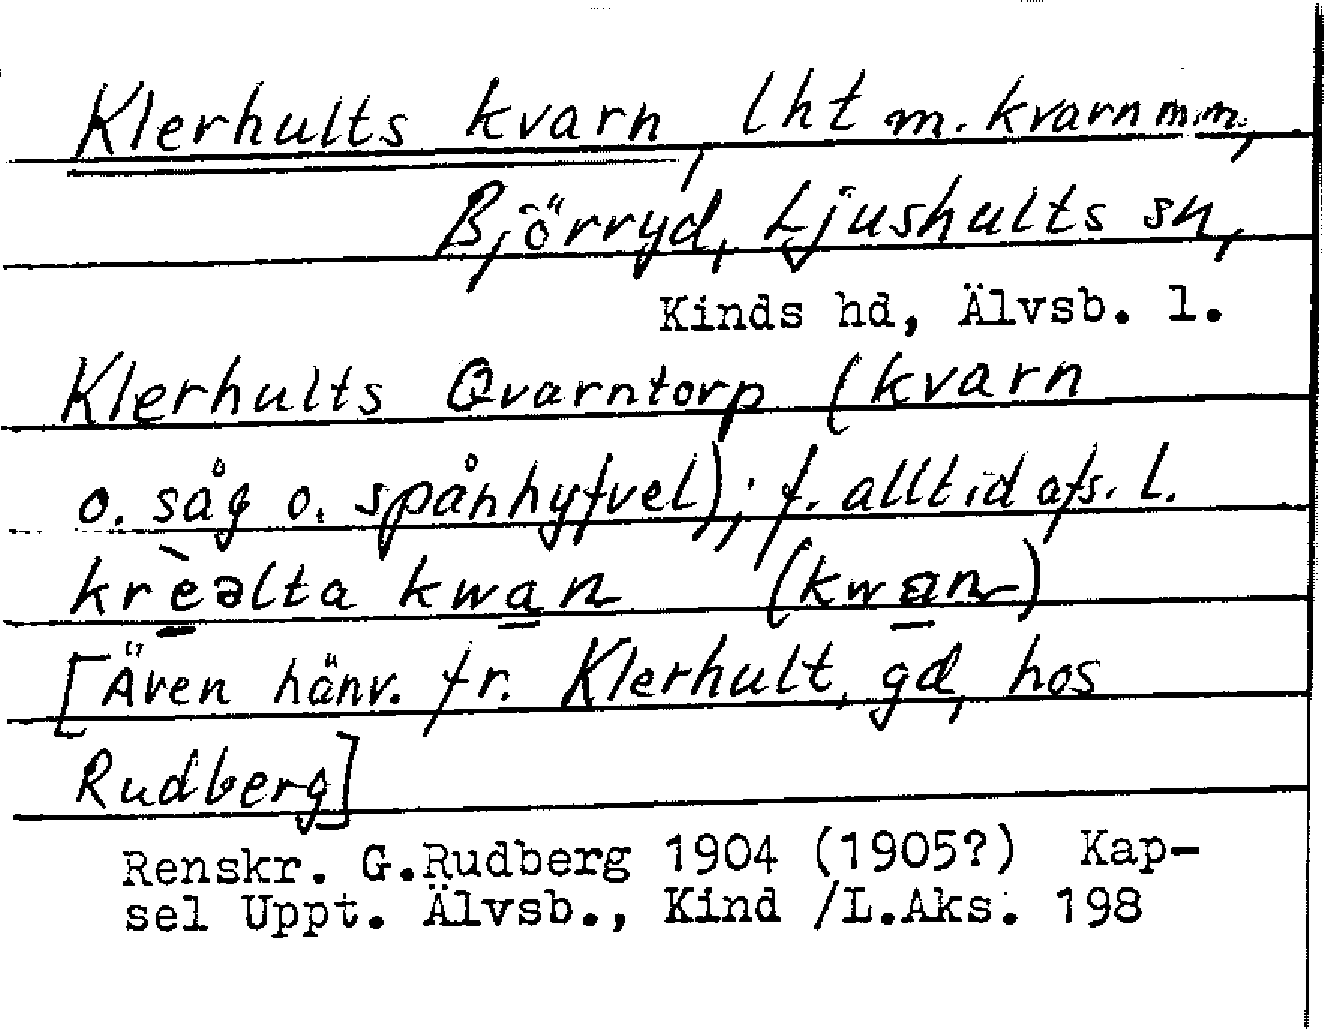 Klerhults kvarn, lht m. kvarn m.m.,
Björryd, Ljushults sn,
Kinds hd, Älvsb. l.
Klerhults Qvarntorp (kvarn
o. såg o. spånhyfvel); f. alltid afs. l.
krèəlta kwan (kwan)
[Även hänv. fr. Klerhult, gd, hos
Rudberg]
Renskr. G.Rudberg 1904 (1905?) Kap-
sel Uppt. Älvsb., Kind /L.Aks. 198